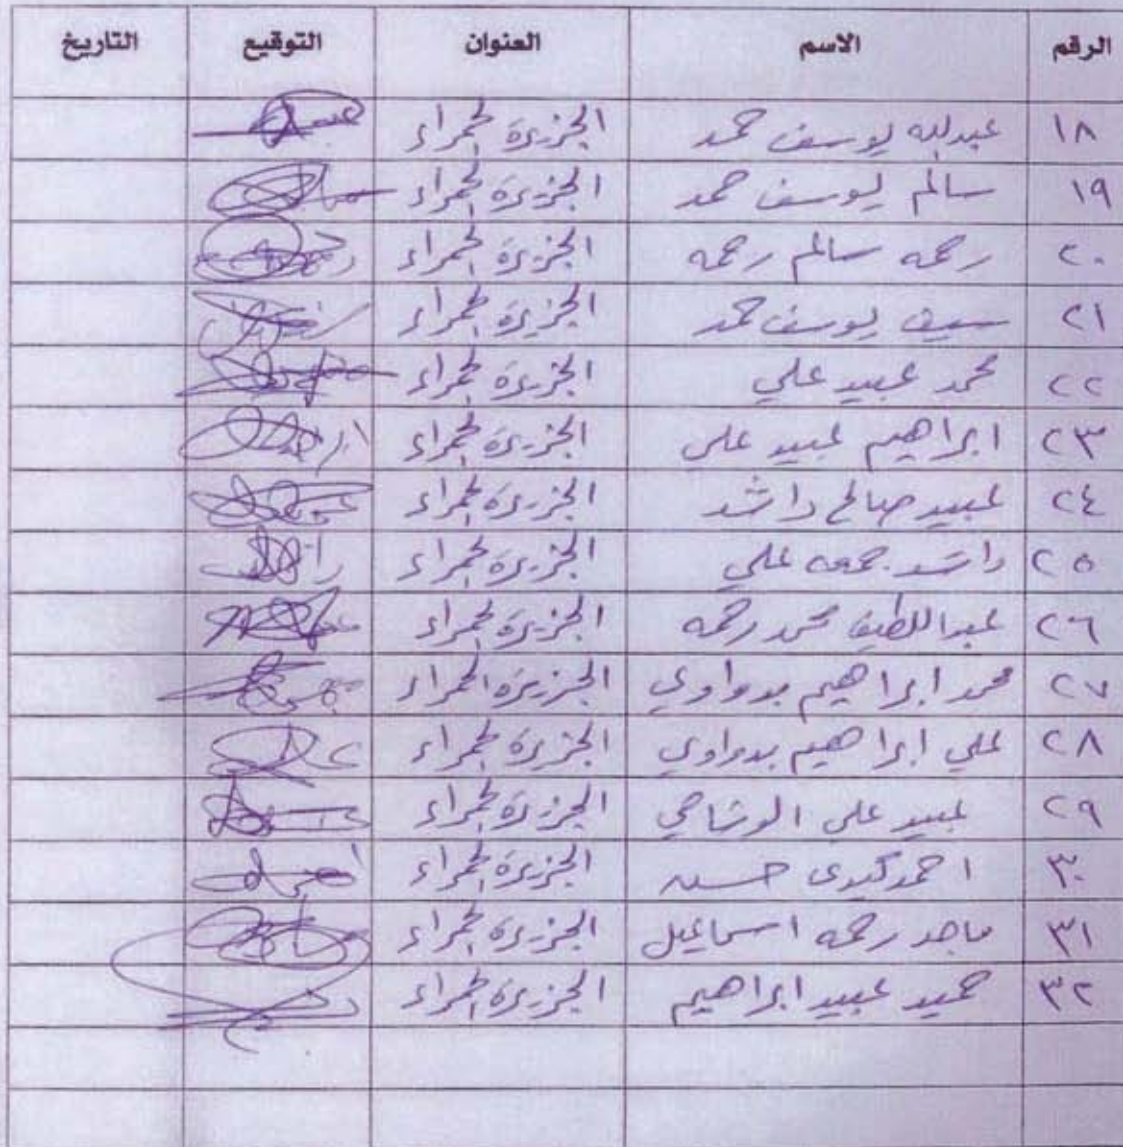 الرقم الاسم العنوان التوقيع التاريخ
١٨ عبدالله يوسف حمد الجزيرة الحمراء
١٩ سالم يوسف حمد الجزيرة الحمراء
٢٠ رحمه سالم رحمه الجزيرة الحمراء
٢١ سيف يوسف حمد الجزيرة الحمراء
٢٢ محمد عبيد علي الجزيرة الحمراء
٢٣ ابراهيم عبيد علي الجزيرة الحمراء
٢٤ عبيد صالح راشد الجزيرة الحمراء
٢٥ راشد جمعه علي الجزيرة الحمراء
٢٦ عبداللطيف محمد رحمه الجزيرة الحمراء
٢٧ محمد ابراهيم بدواوي الجزيرة الحمراء
٢٨ علي ابراهيم بدواوي الجزيرة الحمراء
٢٩ عبيد علي الوشاحي الجزيرة الحمراء
٣٠ احمد كيدى حسن الجزيرة الحمراء
٣١ ماجد رحمه اسماعيل الجزيرة الحمراء
٣٢ حميد عبيد ابراهيم الجزيرة الحمراء